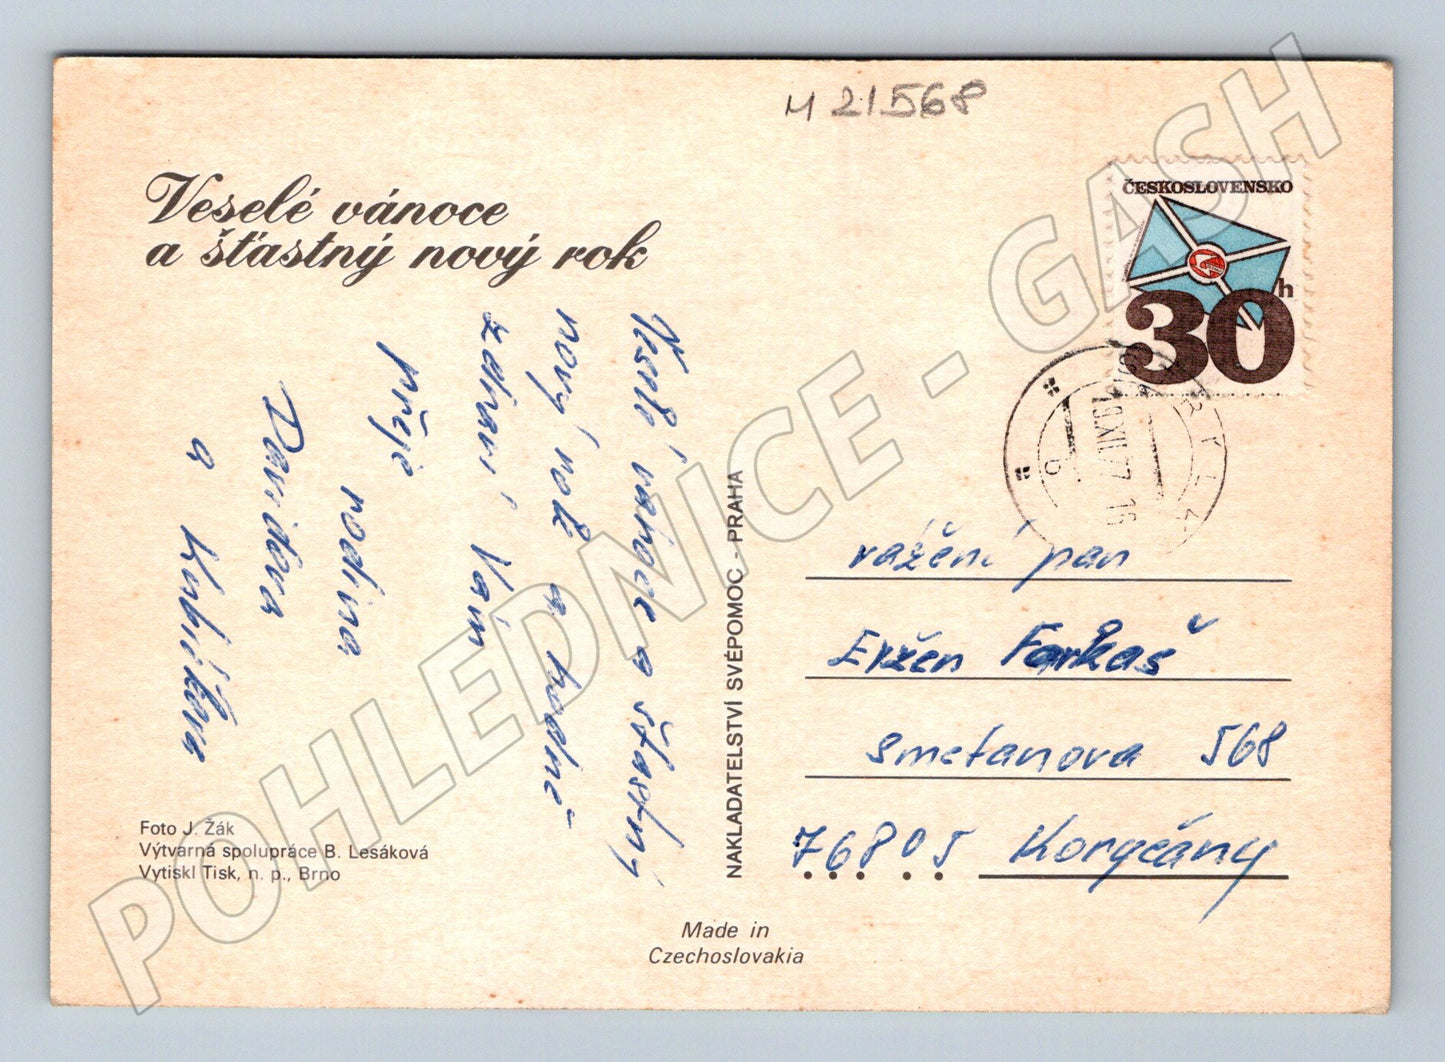 M 21568
Veselé vánoce
a šťastný nový rok
ČESKOSLOVENSKO
30h
19.XII.77-16
Veselé vánoce a šťastný
nový rok a hodně
zdraví Vám
přeje
rodina
Davidova
a Kubíčkova
NAKLADATELSTVÍ SVÉPOMOC - PRAHA
vážení pan
Eržen Farkaš
Smetanova 568
76805 Koryčány
Foto J. Žák
Výtvarná spolupráce B. Lesáková
Vytiskl Tisk, n. p., Brno
Made in
Czechoslovakia
POHLEDNICE - GASH